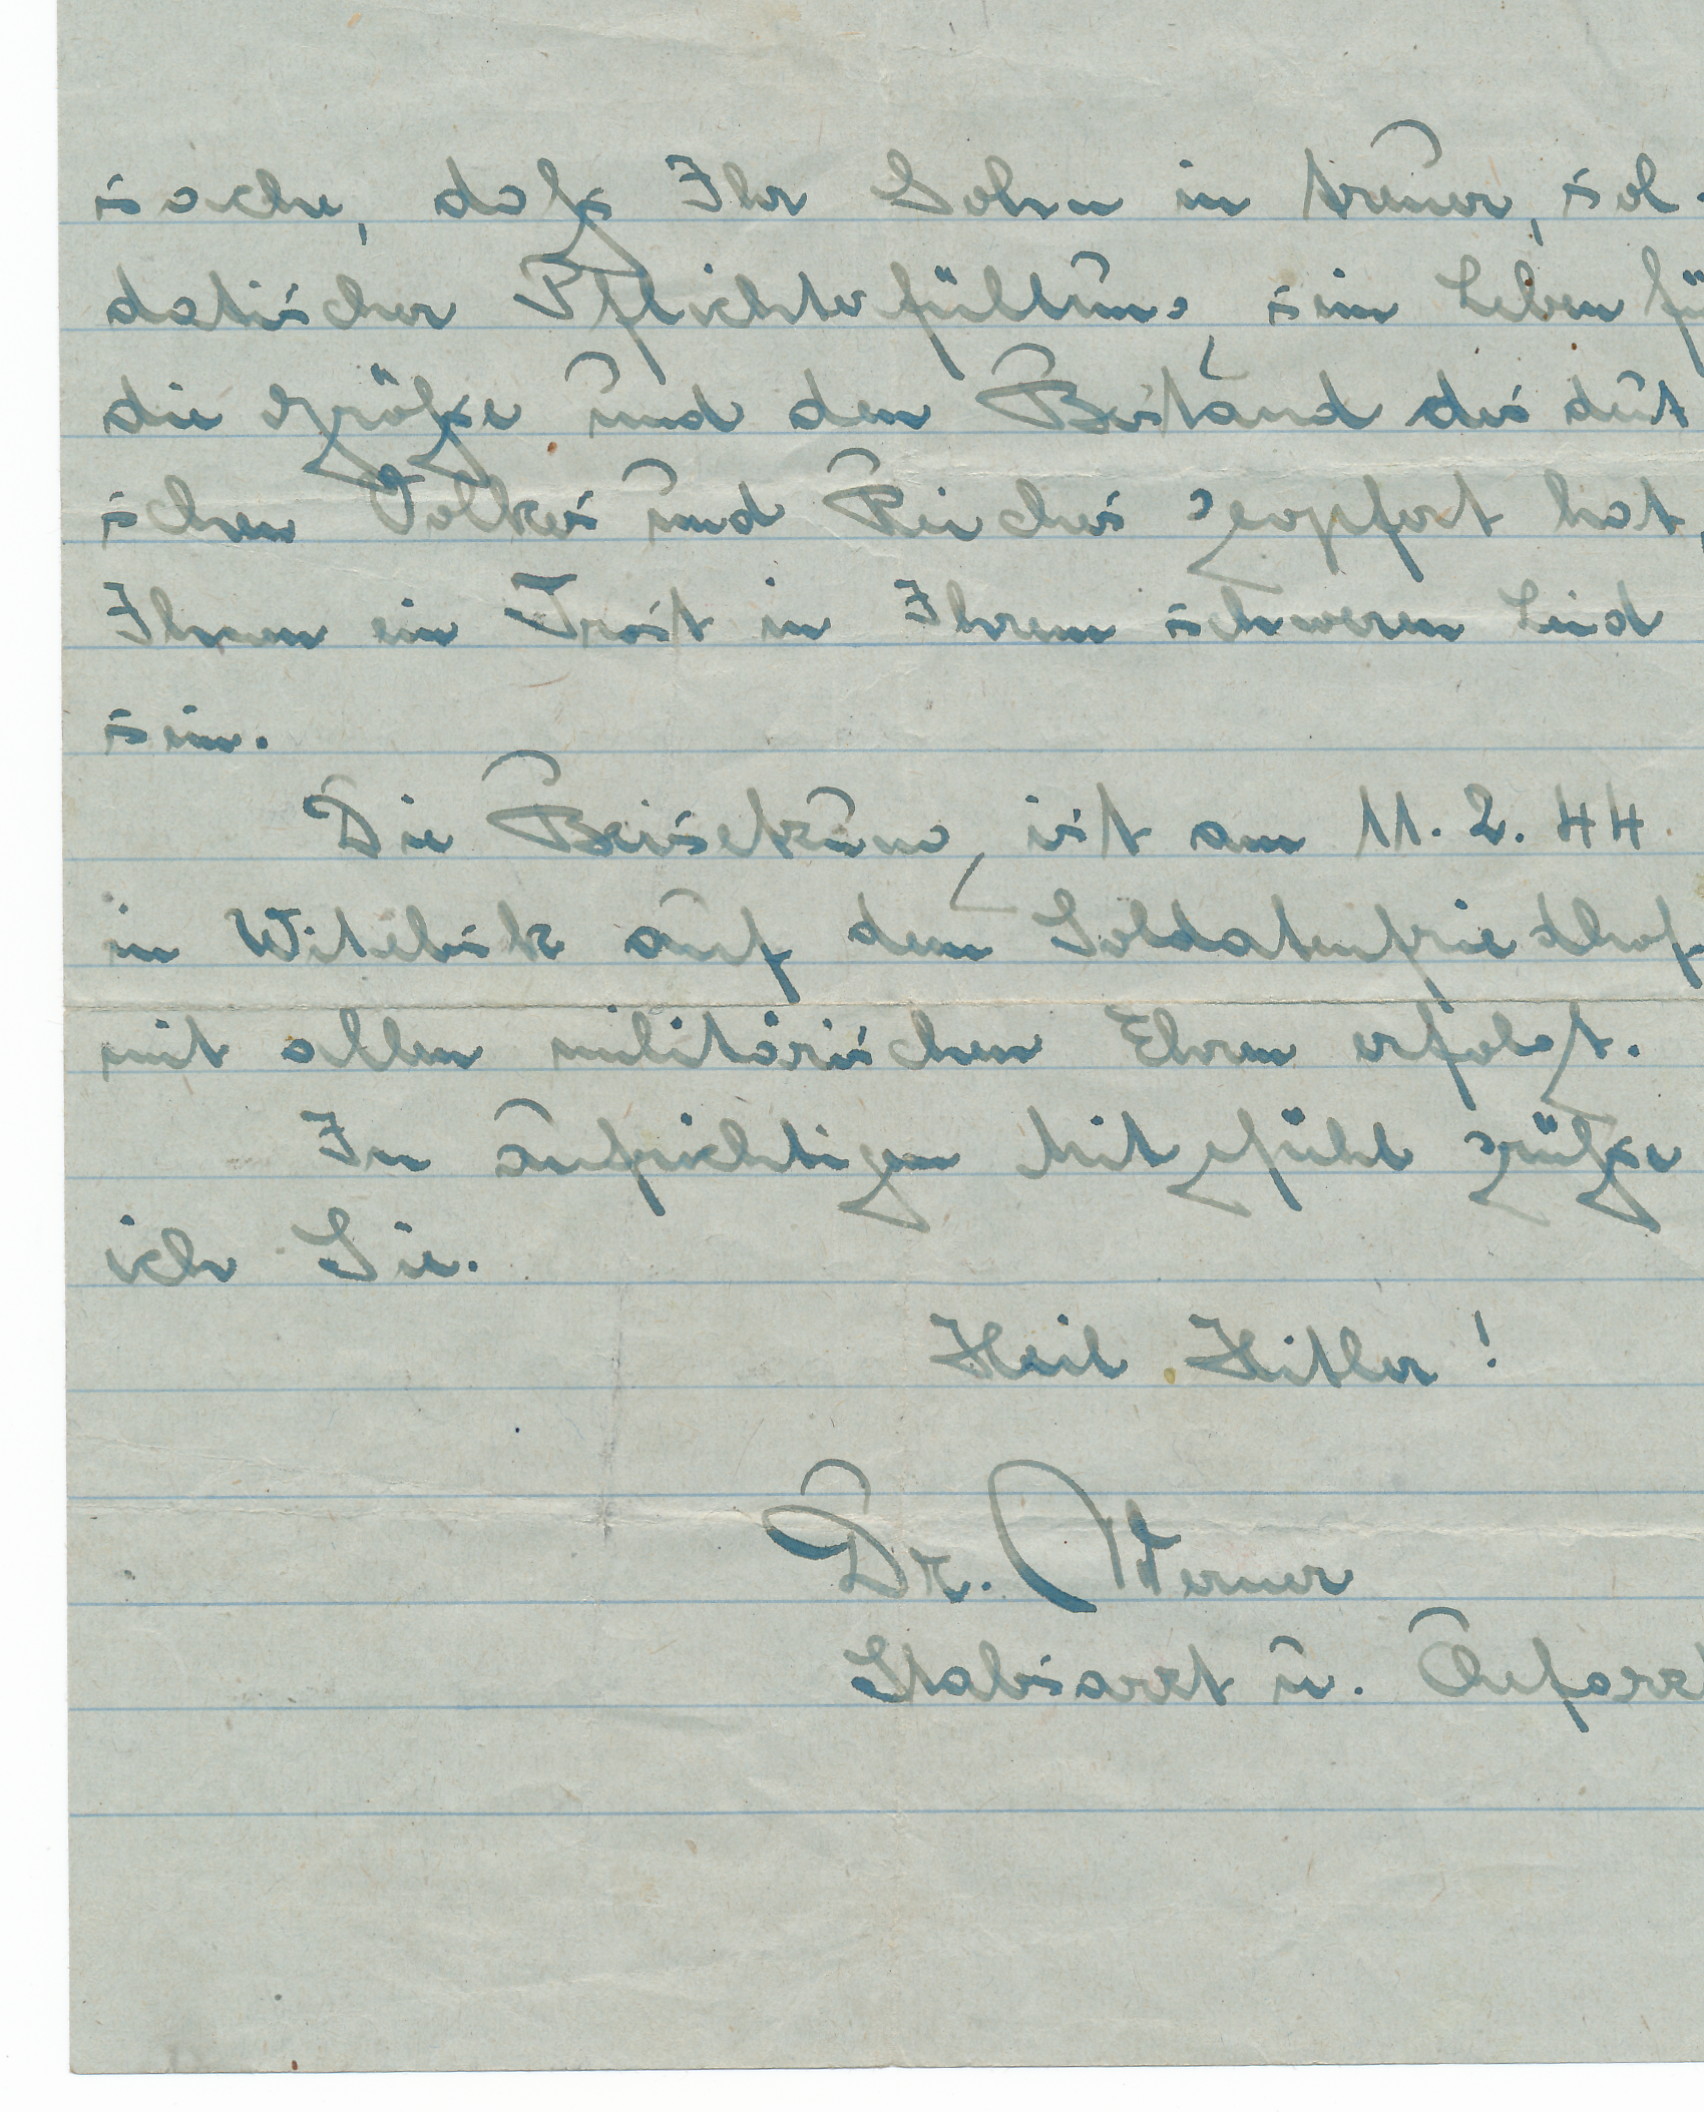 sache, daß Ihr Sohn in treuer, sol-
datischer Pflichterfüllung sein Leben fü
die Größe und den Bestand des deut
schen Volkes und Reiches geopfert hat,
Ihnen ein Trost in Ihrem schweren Leid
sein.
Die Beisetzung ist am 11.2.44
in Witebsk auf dem Soldatenfriedhof
mit allen militärischen Ehren erfolgt.
In aufrichtigem Mitgefühl grüße
ich Sie.
Heil Hitler!
Dr. Werner
Stabsarzt u. Chefarzt